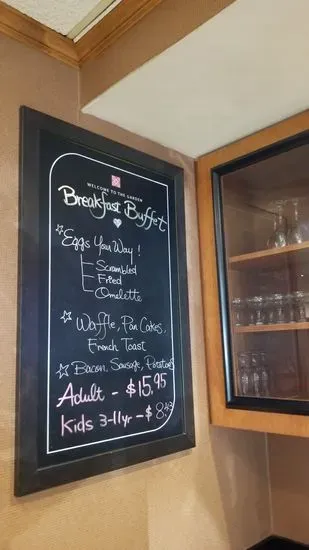 WELCOME TO THE GARDEN
Breakfast Buffet
Eggs Your Way!
Scrambled
Fried
Omelette
Waffle, Pan Cakes,
French Toast
Bacon, Sausage, Potatoes
Adult - $15.95
Kids 3-11yr - $8.43